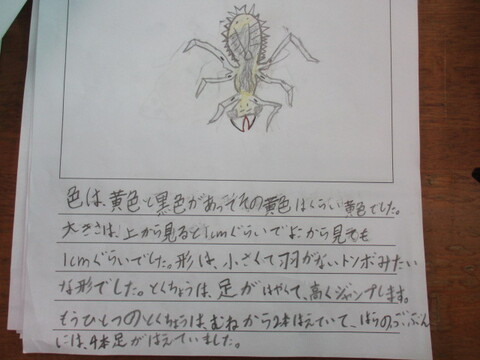 色は、黄色と黒色があってその黄色はくらい黄色でした。
大きさは、上から見ると1cmぐらいでよこから見ても
1cmぐらいでした。形は、小さくて羽がないトンボみたい
な形でした。とくちょうは、足がはやくて、高くジャンプします。
もうひとつのとくちょうは、むねから2本はえていて、はらのぶぶん
には、4本足がはえていました。